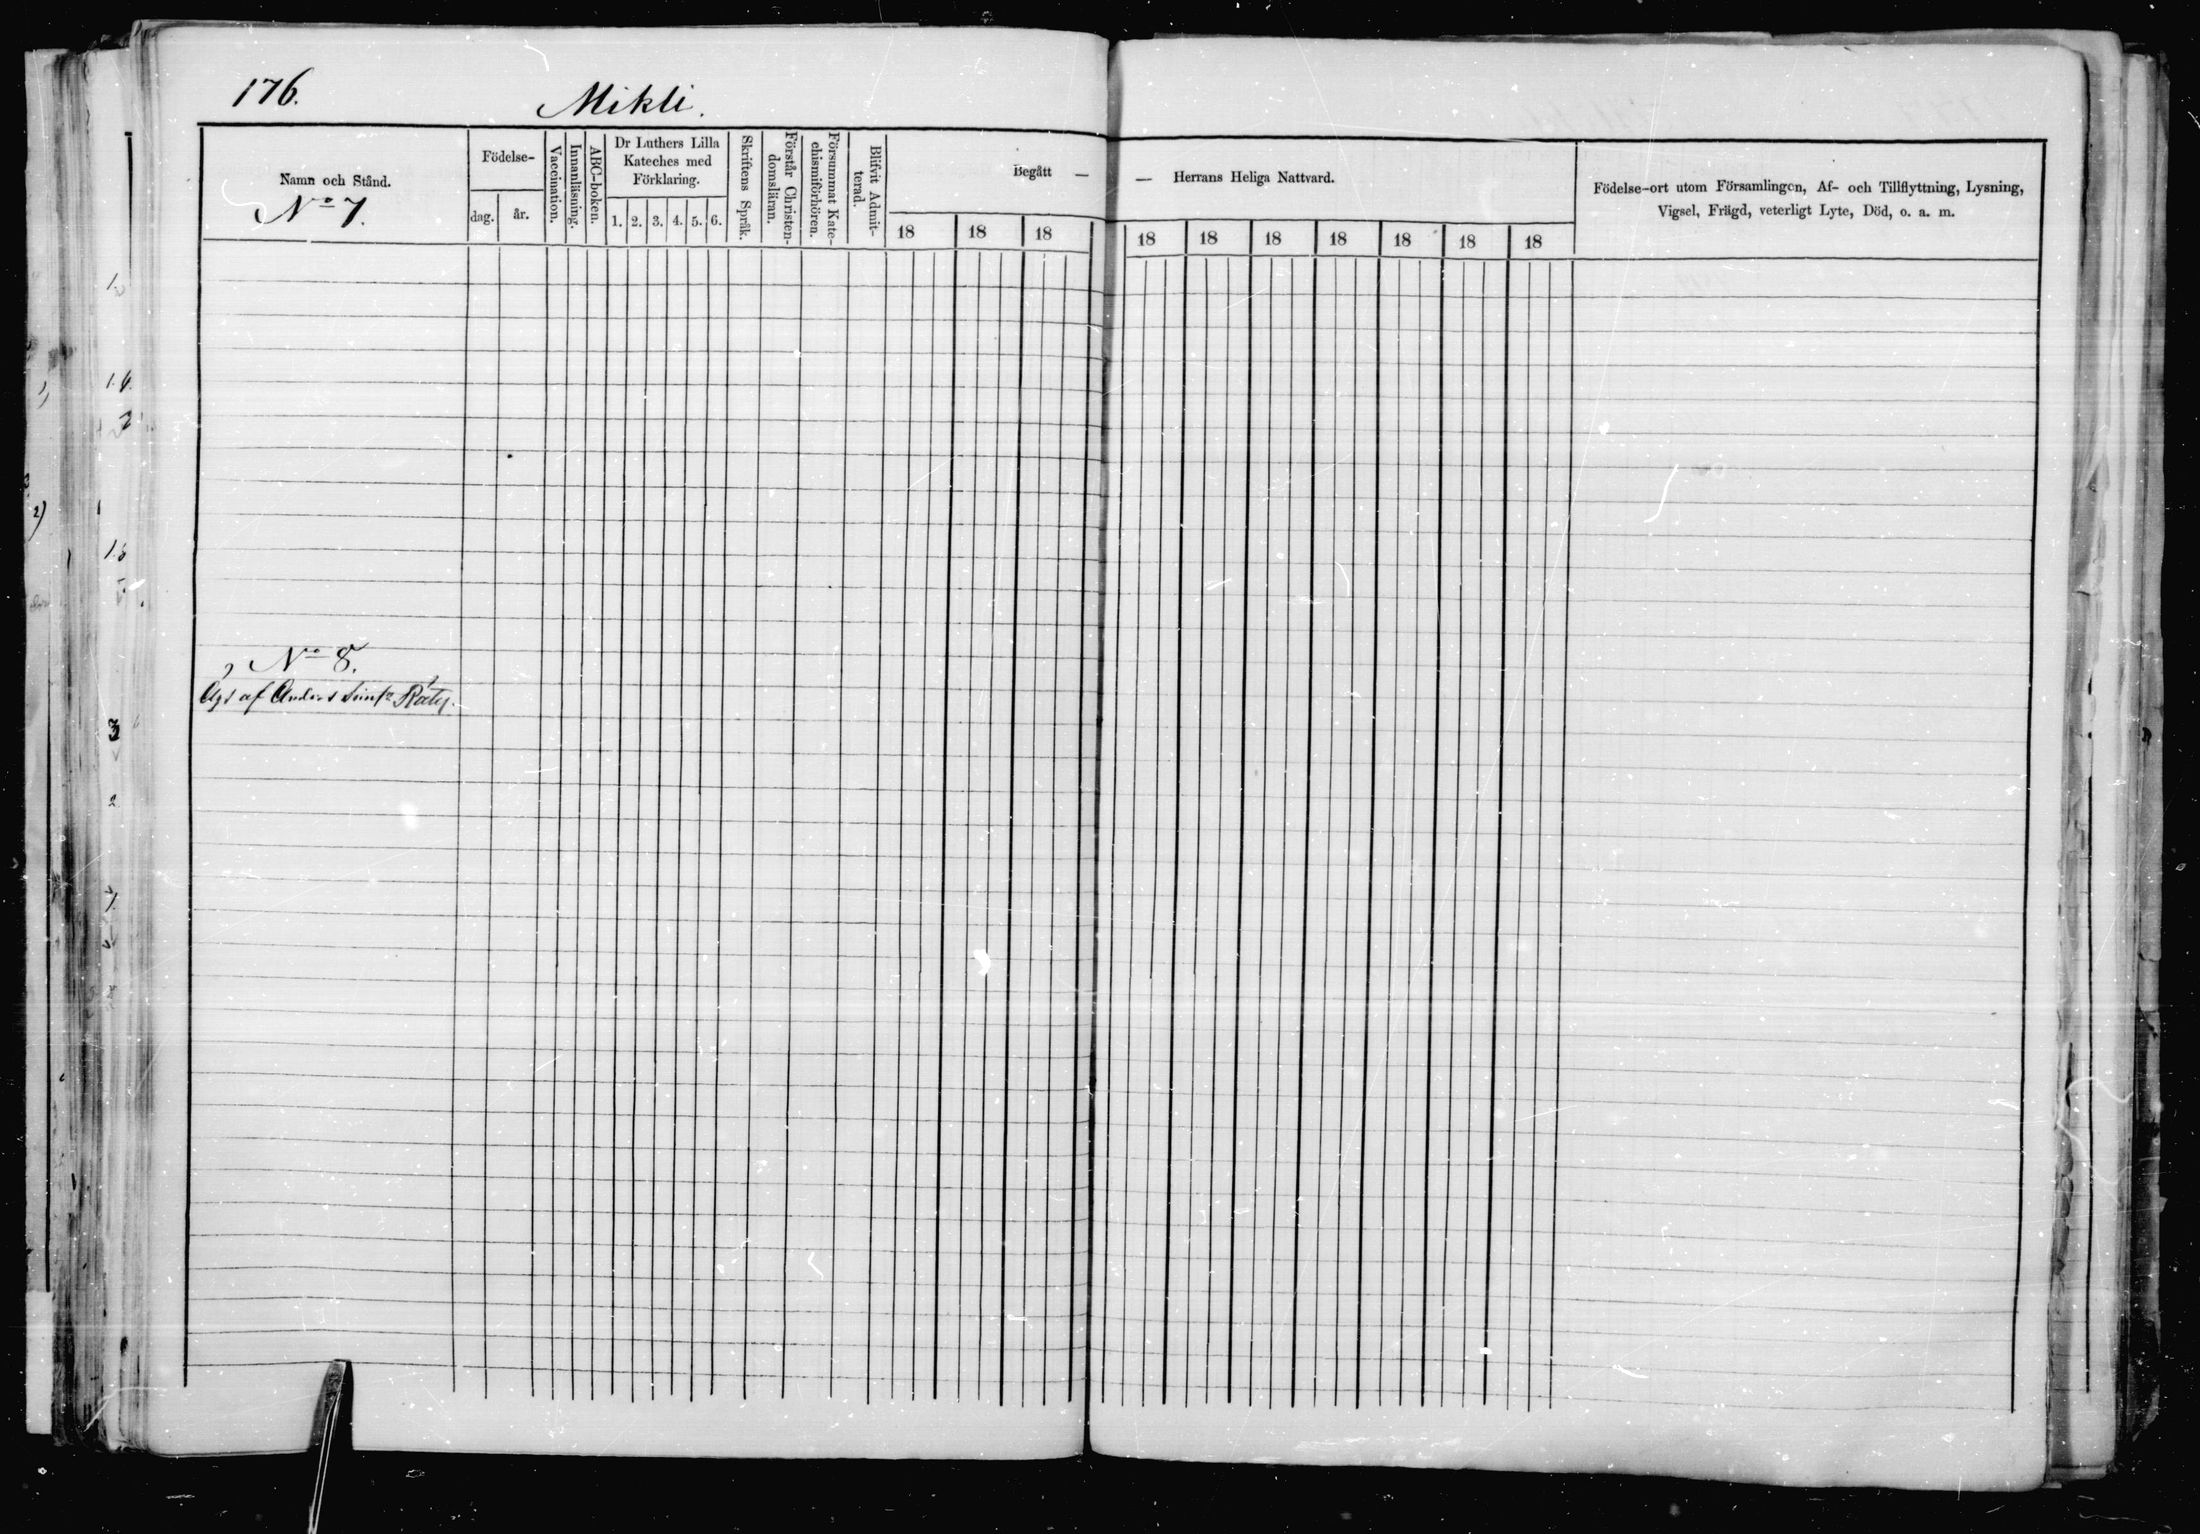 176.
Mikli.
Namn och Stånd.
No 7.
Födelse-
dag. år.
Vaccination.
Innanläsning.
ABC-boken.
Dr Luthers Lilla
Kateches med
Förklaring.
1. 2. 3. 4. 5. 6.
Skriftens Språk.
Förstår Christen-
domsläran.
Försummat Kate-
chismiförhören.
Blifvit Admit-
terad.
Begått —
18 18 18
— Herrans Heliga Nattvard.
18 18 18 18 18 18 18
Födelse-ort utom Församlingen, Af- och Tillflyttning, Lysning,
Vigsel, Frägd, veterligt Lyte, Död, o. a. m.
No 8.
af Anders